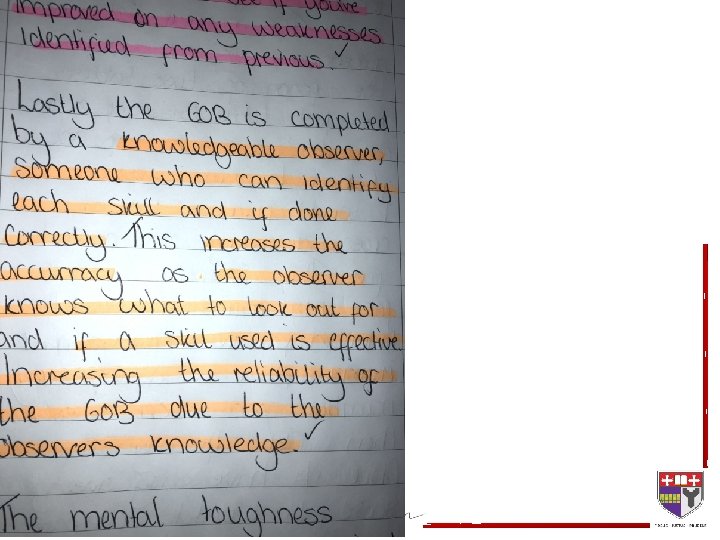 improved on any weaknesses
Identified from previous.
Lastly the GOB is completed
by a knowledgeable observer,
someone who can identify
each skill and if done
correctly. This increases the
accurracy as the observer
knows what to look out for
and if a skill used is effective
Increasing the reliability of
the GOB due to the
observers knowledge.
The mental toughness